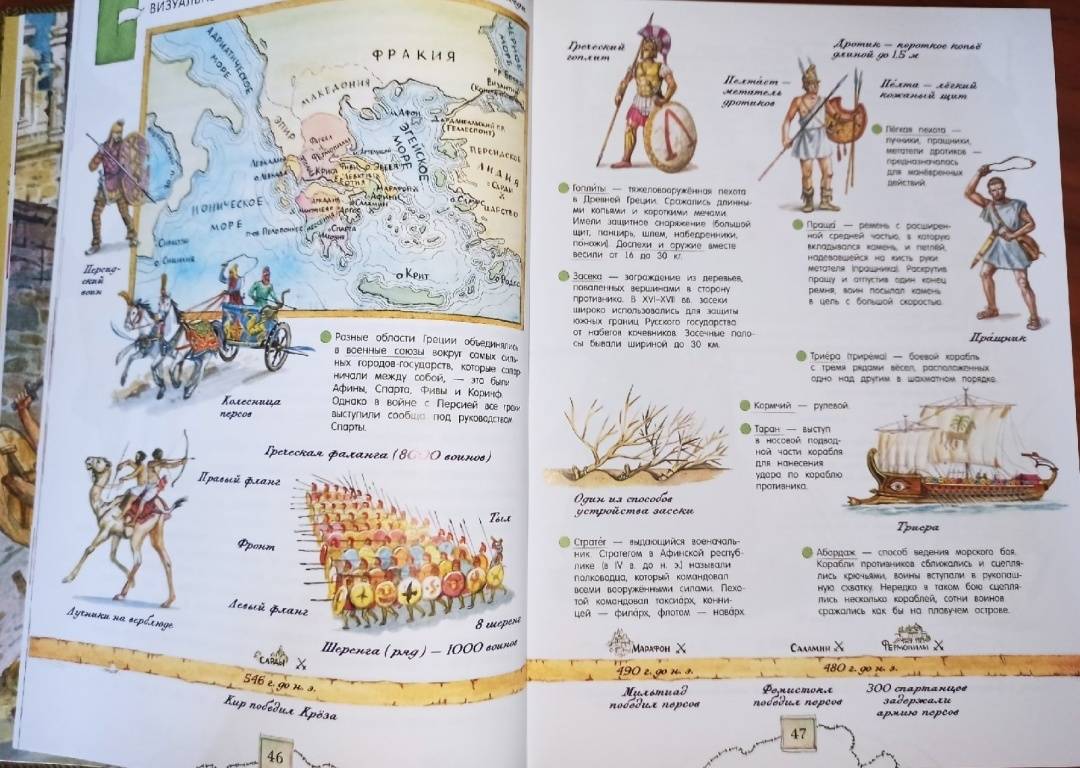 ВИЗУАЛЬН
АДРИАТИЧЕСКОЕ
МОРЕ
ФРАКИЯ
МАКЕДОНИЯ
ЭПИР
ЭГЕЙСКОЕ
МОРЕ
ИОНИЧЕСКОЕ
МОРЕ
ПЕРСИДСКОЕ
ЛИДИЯ
ЦАРСТВО
Марафон
Афины
Спарта
Крит
Родос
Персид-
ский
воин
Колесница
персов
Разные области Греции объединялись
в военные союзы вокруг самых силь-
ных городов-государств, которые сопер-
ничали между собой, — это были
Афины, Спарта, Фивы и Коринф.
Однако в войне с Персией все греки
выступили сообща под руководством
Спарты.
Греческая фаланга (8000 воинов)
Правый фланг
Тыл
Фронт
Левый фланг
8 шеренг
Шеренга (ряд) — 1000 воинов
Лучники на верблюде
САРДЫ
546 г. до н. э.
Кир победил Крёза
46
Греческий
гоплит
Дротик — короткое копьё
длиной до 1.5 м
Пелтаст —
метатель
дротиков
Пелта — лёгкий
кожаный щит
Лёгкая пехота —
лучники, пращники,
метатели дротиков —
предназначалась
для манёвренных
действий.
Гоплиты — тяжеловооружённая пехота
в Древней Греции. Сражались длинны-
ми копьями и короткими мечами.
Имели защитное снаряжение (большой
щит, панцирь, шлем, набедренники,
поножи). Доспехи и оружие вместе
весили от 16 до 30 кг.
Праща — ремень с расширен-
ной средней частью, в которую
вкладывался камень, и петлёй,
надевавшейся на кисть руки
метателя (пращника). Раскрутив
пращу и отпустив один конец
ремня, воин посылал камень
в цель с большой скоростью.
Пращник
Засека — заграждение из деревьев,
поваленных вершинами в сторону
противника. В XVI–XVII вв. засеки
широко использовались для защиты
южных границ Русского государства
от набегов кочевников. Засечные поло-
сы бывали шириной до 30 км.
Триера (трирема) — боевой корабль
с тремя рядами вёсел, расположенных
одно над другим в шахматном порядке.
Кормчий — рулевой.
Таран — выступ
в носовой подвод-
ной части корабля
для нанесения
удара по кораблю
противника.
Один из способов
устройства засеки
Триера
Стратег — выдающийся военачаль-
ник. Стратегом в Афинской респуб-
лике (в IV в. до н. э.) называли
полководца, который командовал
всеми вооружёнными силами. Пехо-
той командовал таксиарх, конни-
цей — филарх, флотом — наварх.
Абордаж — способ ведения морского боя.
Корабли противников сближались и сцепля-
лись крючьями, воины вступали в рукопаш-
ную схватку. Нередко в таком бою сцепля-
лись несколько кораблей, сотни воинов
сражались как бы на плавучем острове.
МАРАФОН
САЛАМИН
ФЕРМОПИЛЫ
490 г. до н. э.
480 г. до н. э.
Мильтиад
победил персов
Фемистокл
победил персов
300 спартанцев
задержали
армию персов
47